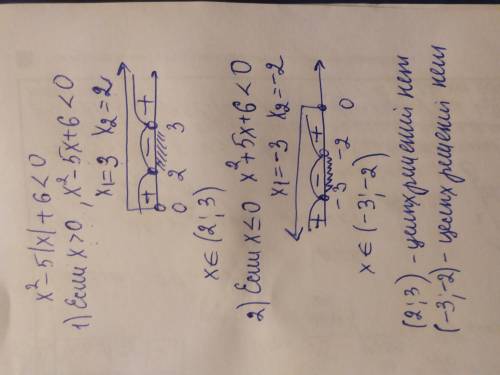 x² - 5|x| + 6 < 0
1) Если x > 0, x² - 5x + 6 < 0
x1 = 3 x2 = 2
+ - +
0 2 3
x ∈ (2; 3)
2) Если x ≤ 0 x² + 5x + 6 < 0
x1 = -3 x2 = -2
+ - +
-3 -2 0
x ∈ (-3; -2)
(2; 3) - целых решений нет
(-3; -2) - целых решений нет